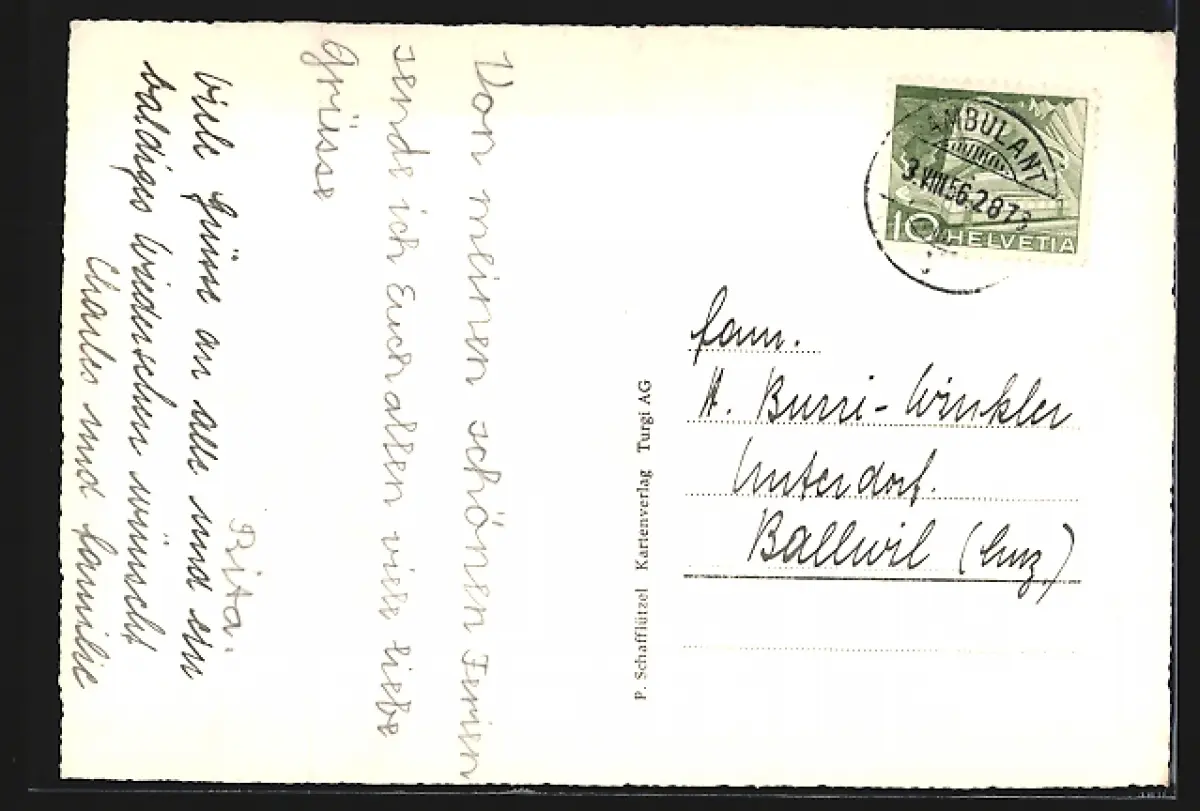 Von meinen schönen Ferien
sende ich Euch allen viele liebe
Grüsse
Rita.
viele Grüsse an alle und ein
baldiges Wiedersehen wünscht
Charles und Familie
P. Schafflützel Kartenverlag Turgi AG
AMBULANT
3.VIII.56.2873
10 HELVETIA
Fam.
A. Burri-Winkler
Unterdorf.
Ballwil (Luz.)